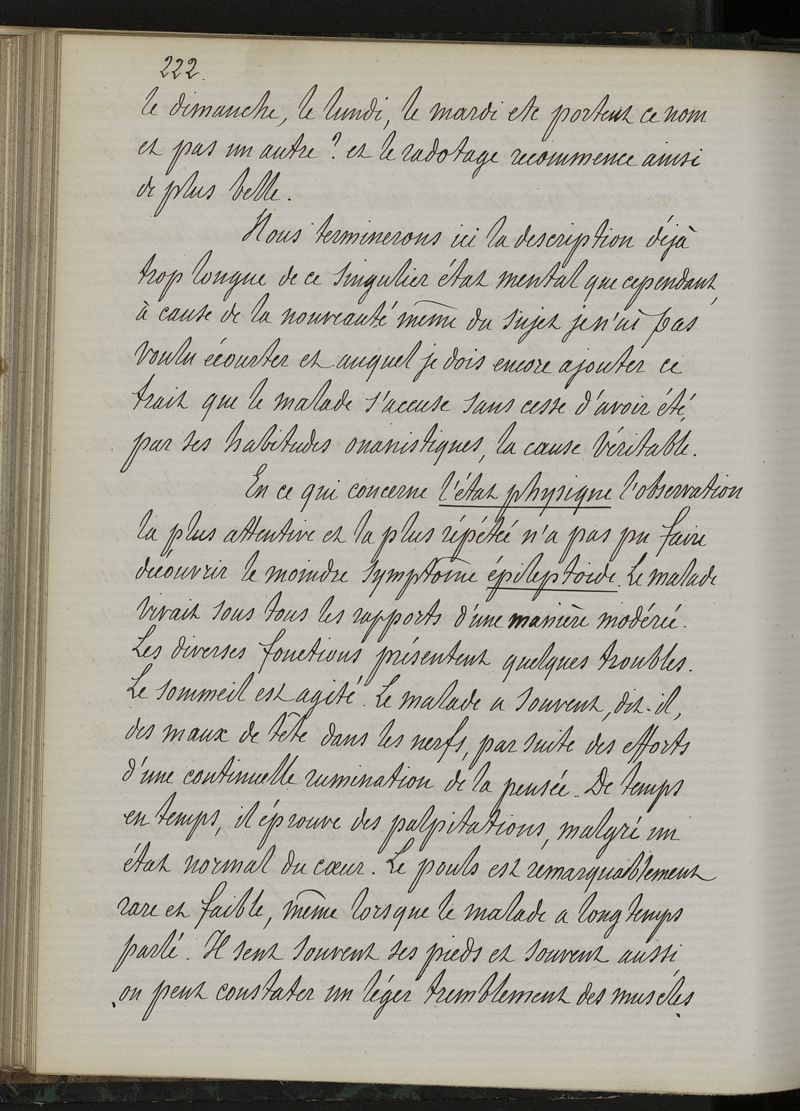 222.
le dimanche, le lundi, le mardi etc portent ce nom
et pas un autre? et le radotage recommence ainsi
de plus belle.
Nous terminerons ici la description déjà
trop longue de ce singulier état mental que cependant,
à cause de la nouveauté même du sujet je n'ai pas
voulu écourter et auquel je dois encore ajouter ce
trait que le malade s'accuse sans cesse d'avoir été,
par ses habitudes onanistiques, la cause véritable.
En ce qui concerne l'état physique l'observation
la plus attentive et la plus répétée n'a pas pu faire
découvrir le moindre symptôme épileptoide. Le malade
vivait sous tous les rapports d'une manière modérée.
Les diverses fonctions présentent quelques troubles.
Le sommeil est agité. Le malade a souvent, dit-il,
des maux de tête dans les nerfs, par suite des efforts
d'une continuelle rumination de la pensée. De temps
en temps, il éprouve des palpitations, malgré un
état normal du cœur. Le pouls est remarquablement
rare et faible, même lorsque le malade a longtemps
parlé. Il sent souvent ses pieds et souvent aussi
on peut constater un léger tremblement des muscles